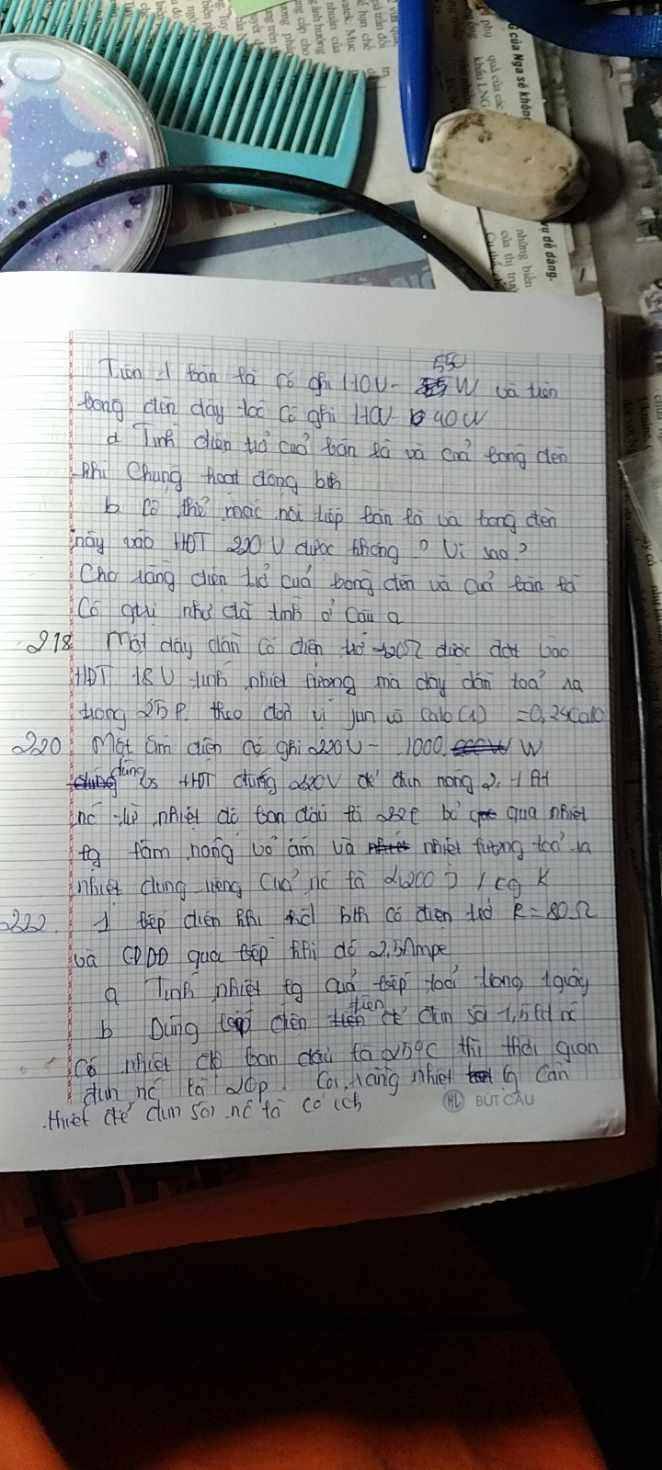 của Nga sẽ không
vụ dễ dàng.
những biến
của thị trư
Trên 1 bàn là có ghi 110V - 550 W và trên
bóng đèn dây tóc có ghi 110V 40W
a Tính điện trở của bàn là và của bóng đèn
khi chúng hoạt động bth
b Có thể mắc nối tiếp bàn là và bóng đèn
này vào HĐT 220V được không? Vì sao?
Cho rằng điện trở của bóng đèn và của bàn là
có giá như đã tính ở câu a
218 Một dây dẫn có điện trở Ω được đặt vào
HĐT 18V tính nhiệt lượng mà dây dẫn toả ra
trong 25P. theo đơn vị jun và calo (1J = 0,24calo
220 Một ấm điện có ghi 220V - 1000 W
dùng vs HĐT đúng 220V để đun nóng 2, lít
nc từ nhiệt độ ban đầu là bỏ qua nhiệt
lg làm nóng vỏ ấm và nhiệt lượng toả ra
nhiệt dung riêng của nc là 4200 J / cg K
222. 1 bếp điện khi hđ bth có điện trở R = 80Ω
và CĐDĐ qua bếp khi đó 2,5Ampe
a Tính nhiệt lg của bếp toả trong 1giây
b Dùng bếp điện trên để đun sôi 1,5 lít nc
có nhiệt độ ban đầu là 25°C thì thời gian
đun nc là 20p. Coi rằng nhiệt lg cần
thiết để đun sôi nc là có ích
BÚT CÂU